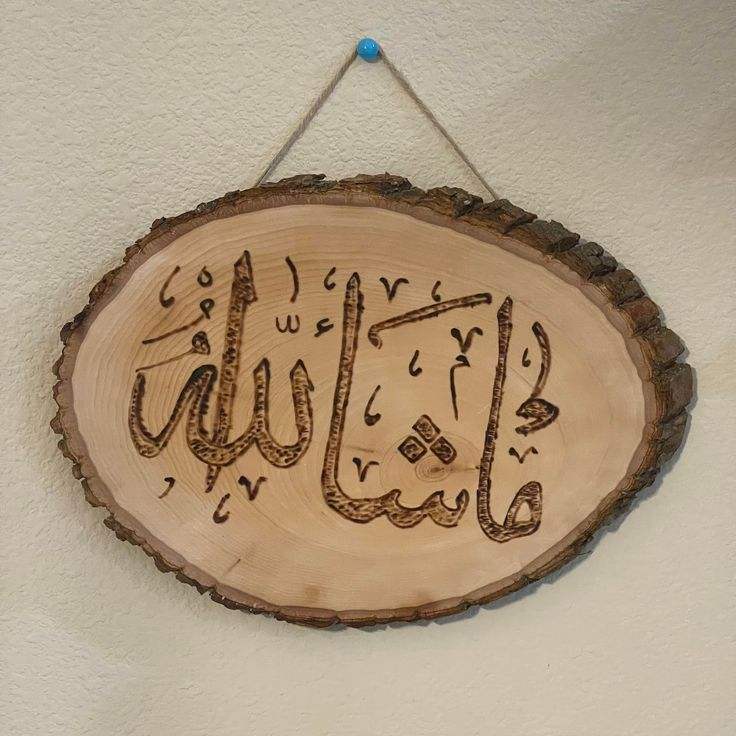 ما شاء اللهُ